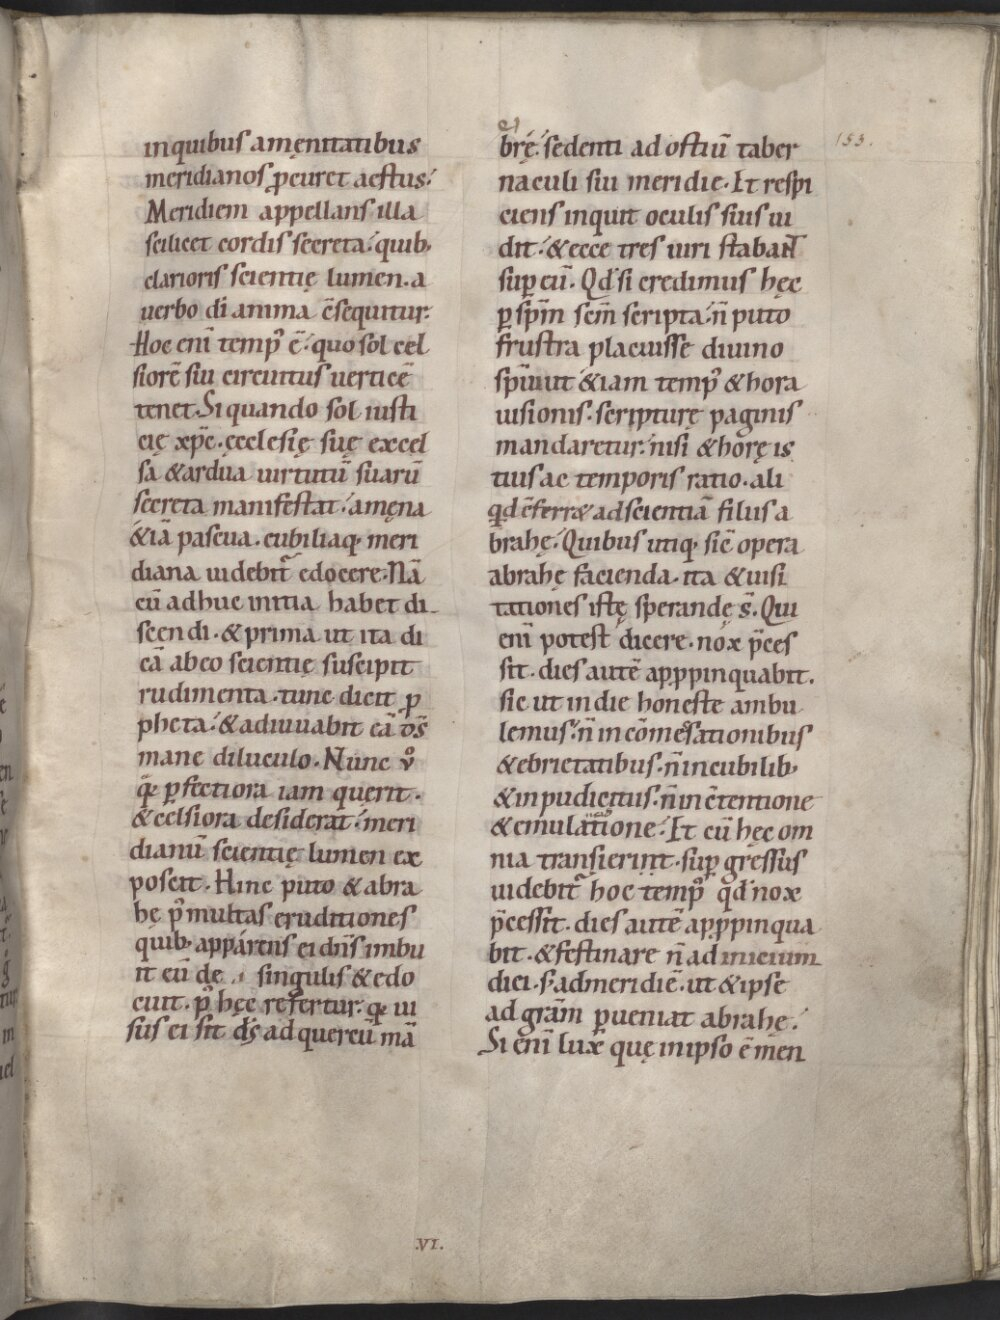 in quibus amęnitatibus
meridianos ꝓcuret aestus.'
Meridiem appellans illa
scilicet cordis secreta.' quib;
clarioris scientię lumen. a
uerbo di̅ anima c̅sequitur.
Hoc eni̅ temp᷒ e̅.' quo sol cel
siore̅ sui circuitus uertice̅
tenet. Si quando sol iusti
cię xp̅c. ęcclesię suę excel
sa & ardua uirtutu̅ suaru̅
secreta manifestat.' amęna
& ia̅ pascua. cubiliaq; meri
diana uidebit᷑ edocere. Na̅
cu̅ adhuc initia habet di
scendi. & prima ut ita di
ca̅ ab eo scientię suscipit
rudimenta. tunc dicit ꝓ
pheta.' & adiuuabit ea̅ ds̅
mane diluculo. Nunc v̊
q; ꝑfectiora iam querit.
& celsiora desiderat.' meri
dianu̅ scientię lumen ex
poscit. Hinc puto & abra
hę p᷒ multas eruditiones
quib; apparens ei dn̅s imbu
it eu̅ de singulis & edo
cuit. p᷒ hęc refertur. q; ui
sus ei sit ds̅ ad quercu̅ ma̅
brę.' sedenti ad ostiu̅ taber
naculi sui meridie. Et respi
ciens inquit oculis suis ui
dit.' & ecce tres uiri stabant
sup eu̅. Qd̅ si credimus hęc
ꝑ sp̅m sc̅m scripta.' n̅ puto
frustra placuisse diuino
sp̅ui ut & iam temp᷒ & hora
uisionis. scripturę paginis
mandaretur.' nisi & horę is
tius ac temporis ratio. ali
qd̅ c̅ferr& ad scientia̅ filiis a
brahę. Quibus utiq; sic̅ opera
abrahę facienda. ita & uisi
tationes istę sperandę s̅. Qui
eni̅ potest dicere. nox p̅ces
sit. dies aute̅ apꝓpinquabit.
sic ut in die honeste ambu
lemus.' n̅ in co̅mesationibus
& ebrietatibus. n̅ in cubilib;
& inpudicitiis. n̅ in c̅tentione
& emulatione.' Et cu̅ hęc om
nia transierint. suꝑgressus
uidebit᷑ hoc temp᷒ qd̅ nox
p̅cessit. dies aute̅ apꝓpinqua
bit. & festinare n̅ ad inicium
diei. s; ad meridie̅. ut & ipse
ad gra̅m ꝑueniat abrahę.'
Si eni̅ lux quę in ipso e̅ men
153.
.VI.